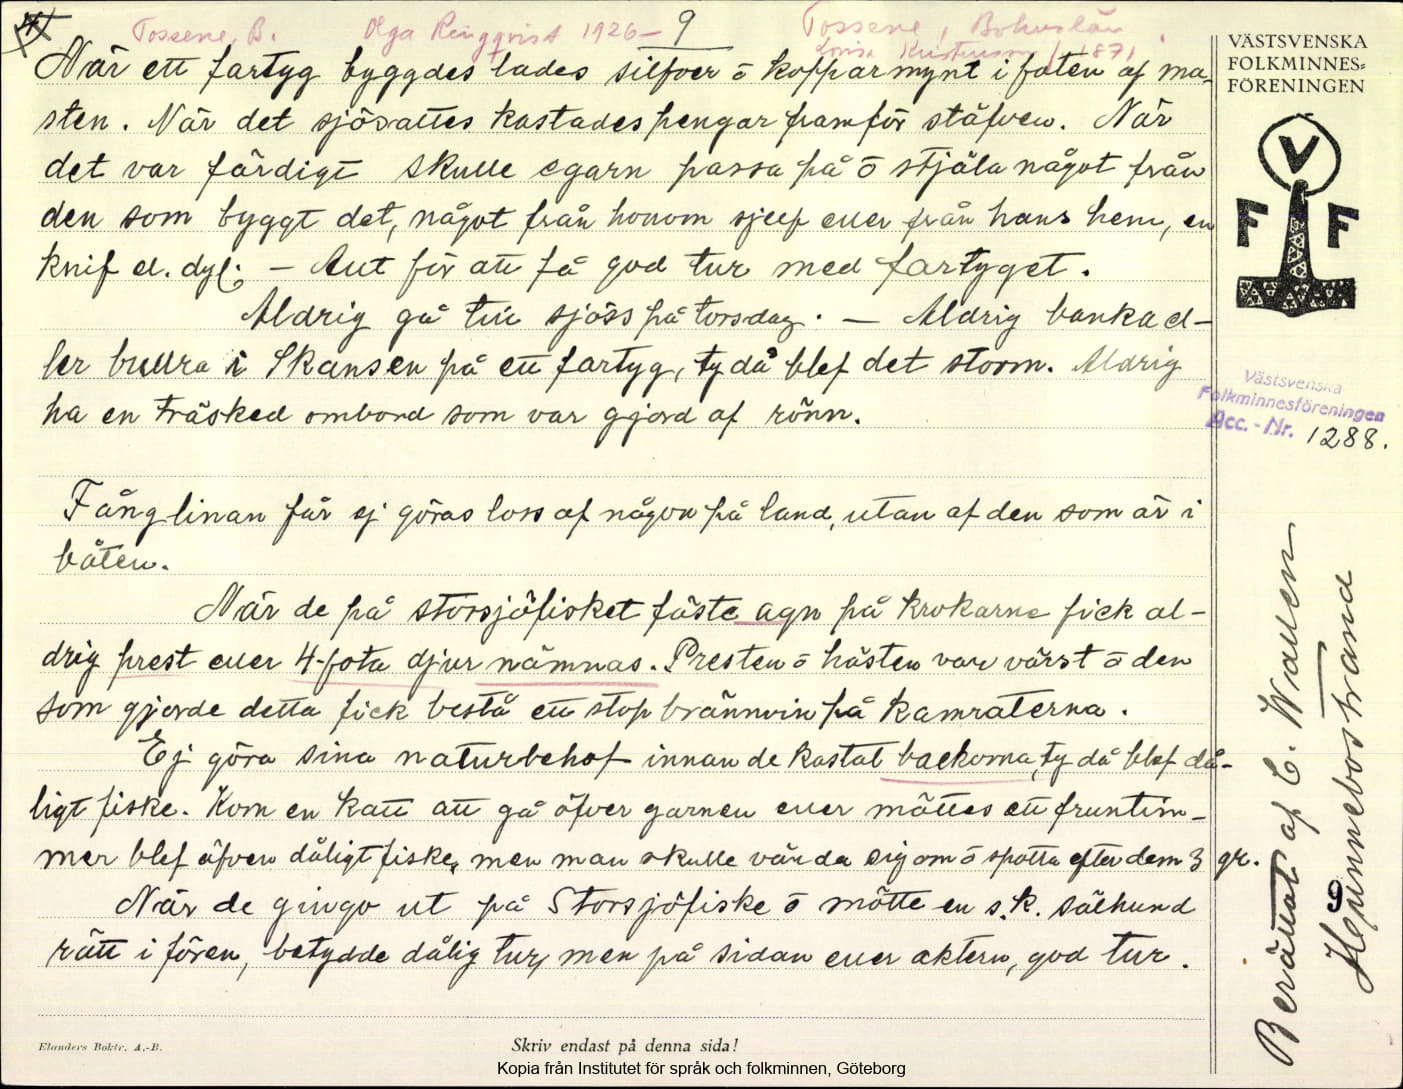 Tossene, B. Olga Ringqvist 1926– 9 Tossene, Bohuslän
VÄSTSVENSKA
FOLKMINNES=
FÖRENINGEN
V
F F
När ett fartyg byggdes lades silfver ō kopparmynt i foten af ma-
sten. När det sjösattes kastades pengar framför stäfven. När
det var färdigt skulle egarn passa på ō stjäla något från
den som byggt det, något från honom sjelf eller från hans hem, en
knif el. dyl. – Allt för att få god tur med fartyget.
Aldrig gå till sjöss på torsdag. – Aldrig banka el-
ler bullra i Skansen på ett fartyg, ty då blef det storm. Aldrig
ha en träsked ombord som var gjord af rönn.
Västsvenska
Folkminnesföreningen
Acc. - Nr. 1288.
Fånglinan får ej göras loss af någon på land, utan af den som är i
båten.
När de på storsjöfisket fäste agn på krokarne fick al-
drig prest eller 4-fota djur nämnas. Presten ō hästen var värst ō den
som gjorde detta fick bestå ett stop brännvin på kamraterna.
Ej göra sina naturbehof innan de kastat backorna, ty då blef då-
ligt fiske. Kom en katt att gå öfver garnen eller möttes ett fruntim-
mer blef äfven dåligt fiske, men man skulle vända sig om ō spotta efter dem 3 gr.
När de gingo ut på Storsjöfiske ō mötte en s.k. sälhund
rätt i fören, betydde dålig tur, men på sidan eller aktern, god tur.
Berättat af C. Wallen
Hunnebostrand
9
Elanders Boktr. A.-B.
Skriv endast på denna sida!
Kopia från Institutet för språk och folkminnen, Göteborg